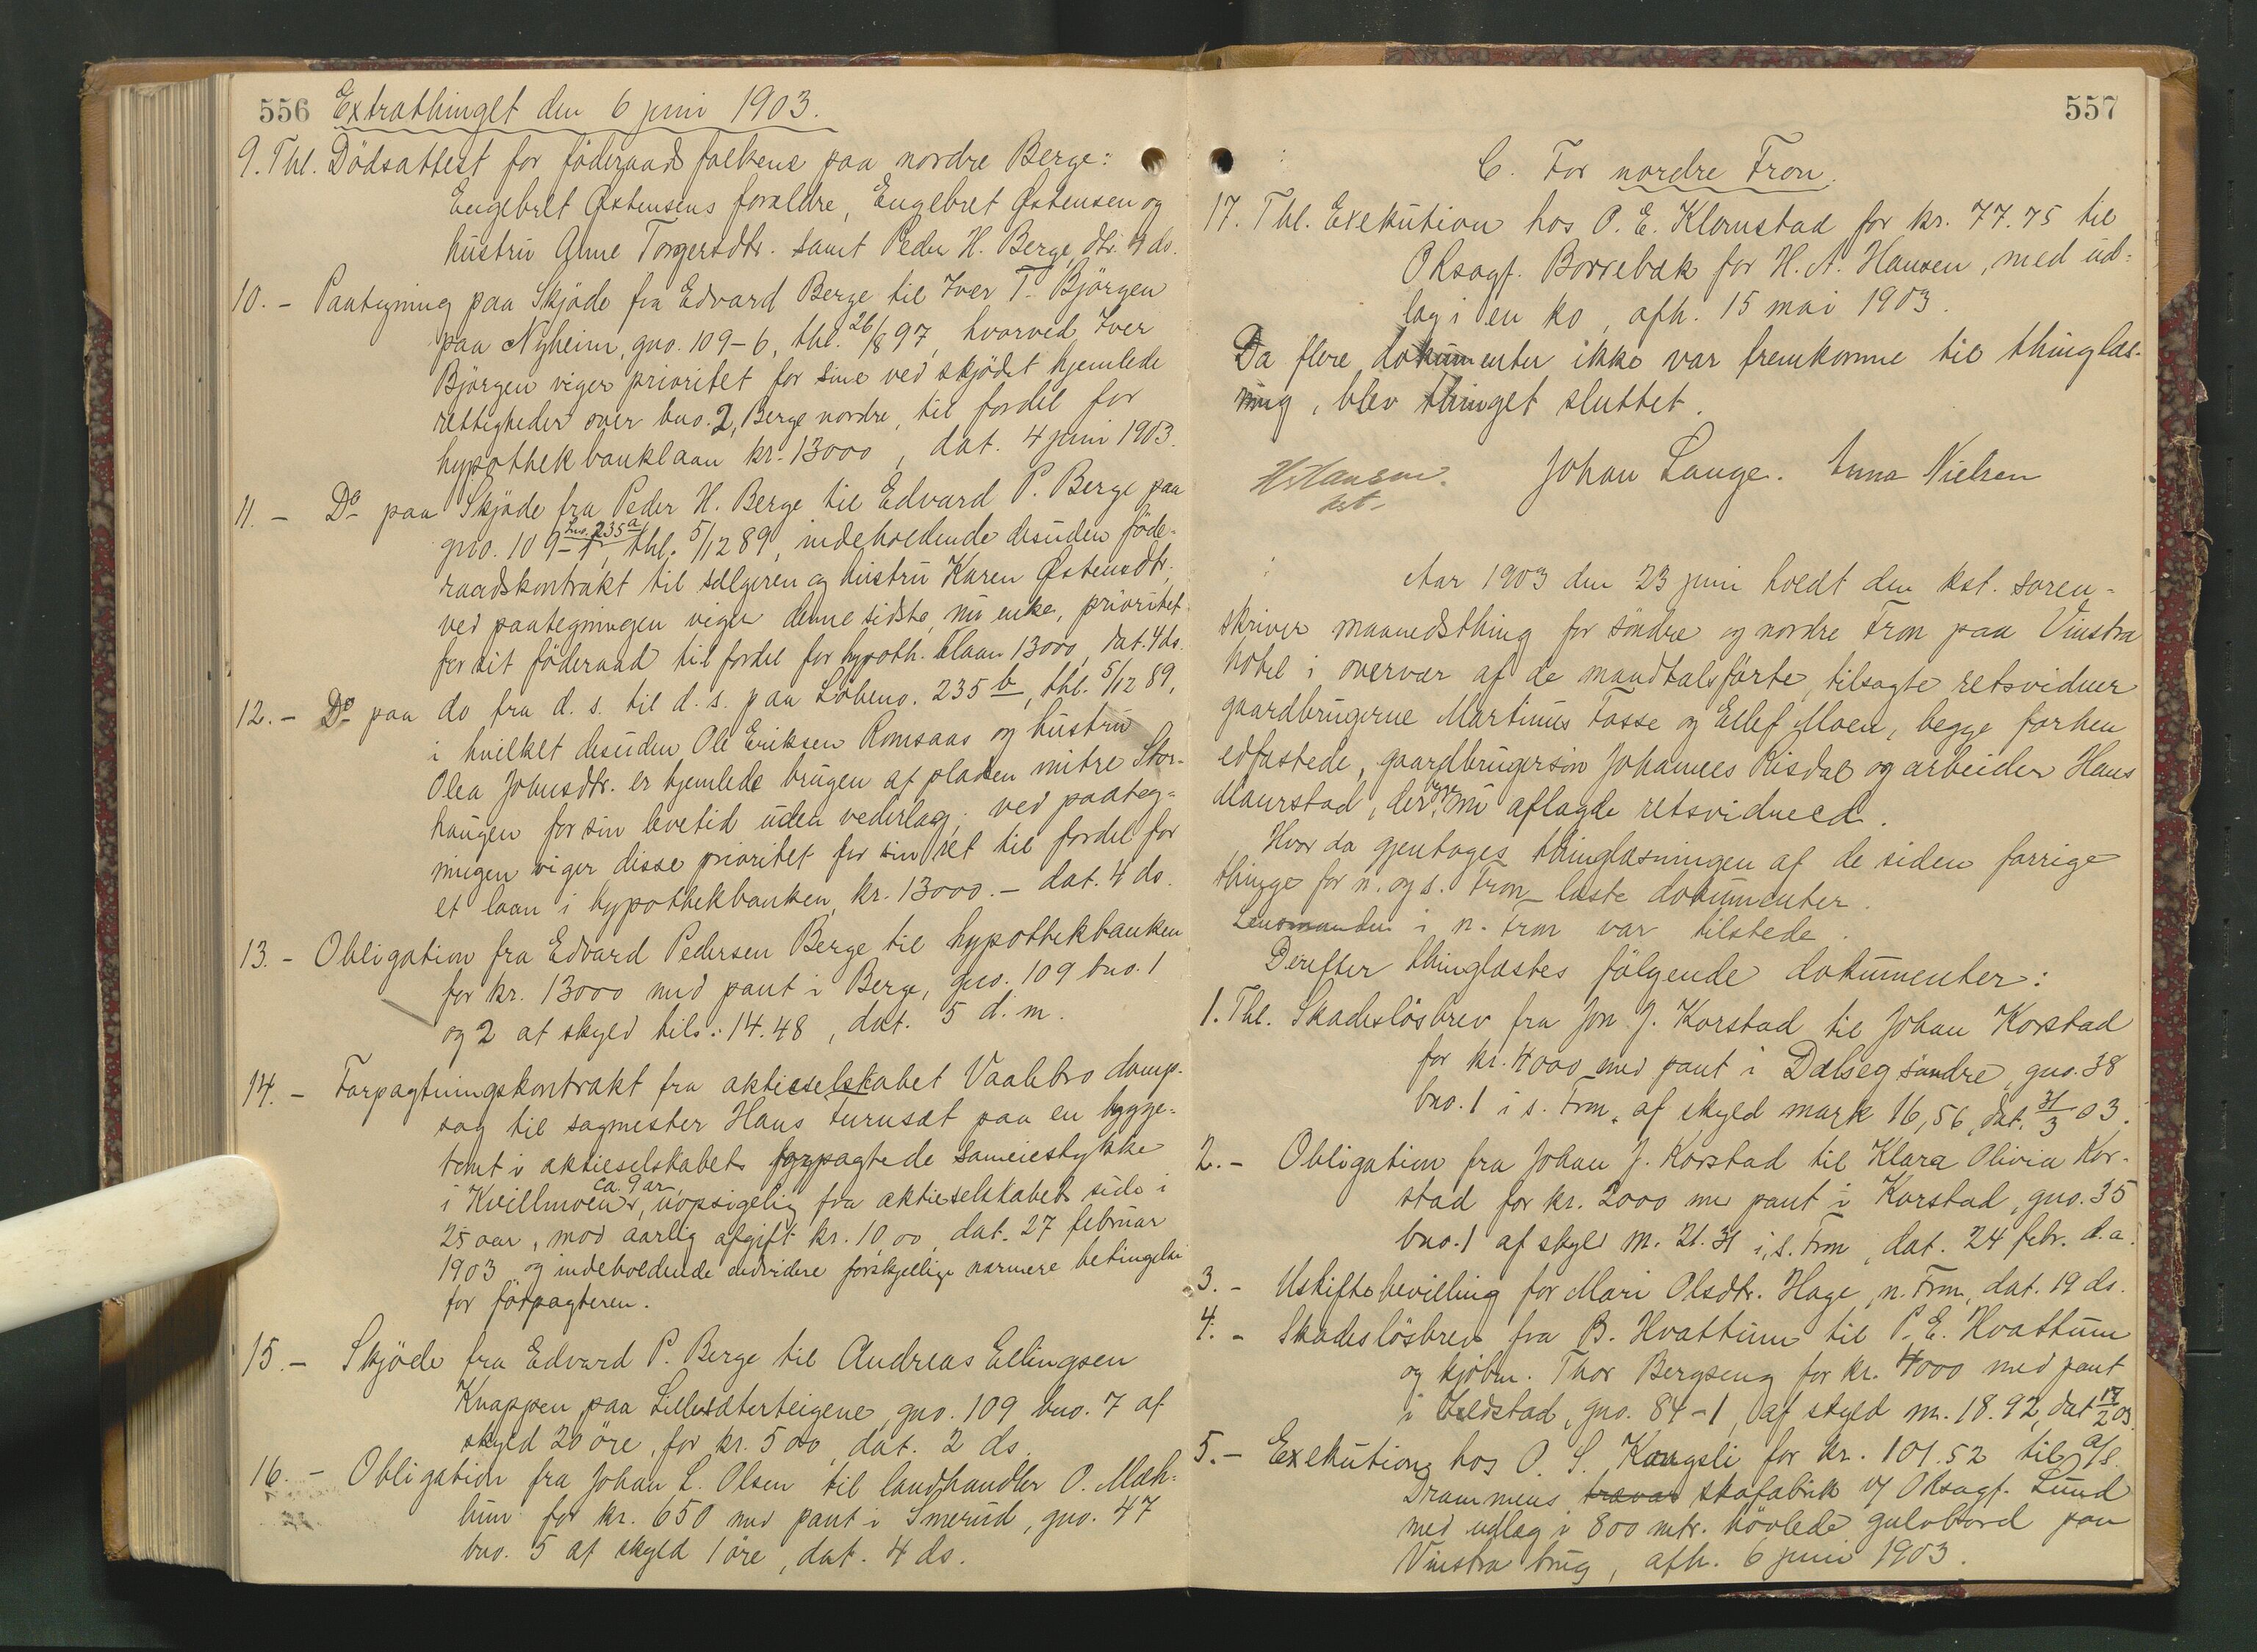 556 Extrathinget den 6 juni 1903.
9. Thl. Dödsattest for föderaadsfolkene paa nordre Berge:
Engebret Østensens forældre, Engebret Østensen og
hustru Anne Torgersdtr. samt Peder H. Berge, dtr. 4 ds.
10. - Paategning paa Skjöde fra Edvard Berge til Iver T. Björgen
paa Nyheim, gno. 109-6, thl. 26/8 97, hvorved Iver
Björgen viger prioritet for sine ved skjödet hjemlede
rettigheder over bno. 2, Berge nordre, til fordel for
hypothekbanklaan kr. 13000, dat. 4 juni 1903.
11. - Do paa Skjöde fra Peder H. Berge til Edvard P. Berge paa
gno. 109-1, Lno. 235a thl. 5/12 89, indeholdende desuden föde-
raadskontrakt til sælgeren og hustru Karen Østensdtr.,
ved paategningen viger denne sidste, nu enke, prioritet
for sit föderaad til fordel for hypoth.blaan 13000, dat. 4 ds.
12. - Do paa do fra d. s. til d. s. paa Löbeno. 235 b, thl. 5/12 89,
i hvilket desuden Ole Eriksen Romsaas og hustru
Olea Johnsdtr. er hjemlede brugen af pladsen mitre Stor-
haugen for sin levetid uden vederlag; ved paateg-
ningen viger disse prioritet for sin ret til fordel for
et laan i hypothekbanken, kr. 13000. - dat. 4 ds.
13. - Obligation fra Edvard Pedersen Berge til hypothekbanken
for kr. 13000 med pant i Berge, gno. 109 bno. 1
og 2 af skyld tils. 14.48, dat. 5 d. m.
14. - Forpagtningskontrakt fra aktieselskabet Vaalebro damp-
sag til sagmester Hans Furusæt paa en bygge-
tomt i aktieselskabets forpagtede sameiestykke
i Kvillmoen, ca. 9 ar, uopsigelig fra aktieselskabets side i
25 aar, mod aarlig afgift kr. 10,00, dat. 27 februar
1903 og indeholdende endvidere forskjellige nærmere betingelser
for forpagteren.
15. - Skjöde fra Edvard P. Berge til Andreas Ellingsen
Knappen paa Lillesæterteigene, gno. 109 bno. 7 af
skyld 20 öre, for kr. 500, dat. 2 ds.
16. - Obligation fra Johan L. Olsen til landhandler O. Mæh-
lum for kr. 650 med pant i Smerud, gno. 47
bno. 5 af skyld 1 öre, dat. 4 ds.
557
C. For nordre Fron.
17. Thl. Exekution hos O. E. Klomstad for kr. 77.75 til
ORsagf. Borrebæk for H. A. Hansen, med ud-
læg i en ko, afh. 15 mai 1903.
Da flere dokumenter ikke var fremkomne til thinglæs-
ning, blev thinget sluttet.
H. Hansen. Johan Lange. Anna Nielsen
kst.
Aar 1903 den 23 juni holdt den kst. soren-
skriver maanedsthing for söndre og nordre Fron paa Vinstra
hotel i overvær af de mandtalsförte, tilsagte retsvidner
gaardbrugerne Martinus Fosse og Ellef Moen, begge forhen
edfæstede, gaardbrugersön Johannes Risdal og arbeider Hans
Maurstad, der begge nu aflagde retsvidneed.
Hvor da gjentages thinglæsningen af de siden forrige
thinge for n. og s. Fron læste dokumenter.
Lensmanden i n. Fron var tilstede.
Derefter thinglæstes fölgende dokumenter:
1. Thl. Skadeslösbrev fra Jon J. Korstad til Johan Korstad
for kr. 4000 med pant i Dalseg söndre, gno. 38
bno. 1 i s. Fron, af skyld mark 16,56, dat. 31/3 03.
2. - Obligation fra Johan J. Korstad til Klara Olivia Kor-
stad for kr. 2000 med pant i Korstad, gno. 35
bno. 1 af skyld m. 21.31 i s. Fron, dat. 24 febr. d. a.
3. - Uskiftebevilling for Mari Olsdtr. Hage, n. Fron, dat. 19 ds.
4. - Skadeslösbrev fra B. Hvattum til P. E. Hvattum
og kjöbm. Thor Bergseng for kr. 4000 med pant
i, gno. 84-1, af skyld m. 18.92, dat. 17/2 03
5. - Exekution hos O. S. Kongsli for kr. 101.52 til a/s.
Drammens skofabrik v/ ORsagf. Lund
med udlæg i 800 mtr. hövlede gulvbord paa
Vinstra brug, afh. 6 juni 1903.